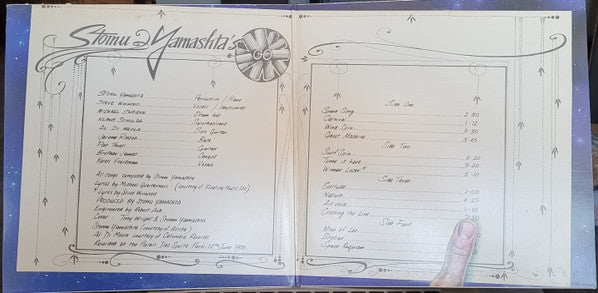 Stomu Yamashta's
GO
Stomu Yamashta Percussion / Piano
Steve Winwood Vocals / Keyboards
Michael Shrieve Drum Kit
Klaus Schulze Synthesisers
Al Di Meola Solo Guitar
Jerome Rimson Bass
Pat Thrall Guitar
Brother James Congas
Karen Friedman Vocals
All songs composed by Stomu Yamashta
Lyrics by Michael Quartermain (Courtesy of Floating Music Ltd)
* Lyrics by Steve Winwood
Produced by Stomu Yamashta
Engineered by Robert Ash
Cover Tony Wright & Stomu Yamashta
Stomu Yamashta (courtesy of Arista)
Al Di Meola courtesy of Columbia Records
Recorded at the Palais Des Sports Paris 12th June 1976
Side One
Space Song 2·30
Carnival 1·12
Wind Spin 9·30
Ghost Machine 3·45
Side Two
Surf Spin 2·20
Time is here 9·20
Winner Loser * 5·10
Side Three
Solitude
Nature
Air voice
Crossing the Line
Side Four
Man of Leo
Stellar
Space Requiem